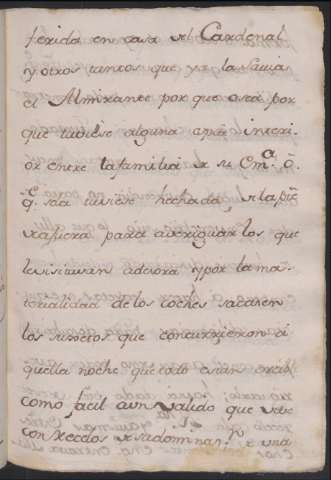 ferida en casa del Cardenal
y otros tantos que ya la savia
el Almirante por que osea por
que tubiese alguna espia interi-
or entre la familia de su Emª. ô.
q.e sea tuviese hechada de la p.te
de afuera para averiguar los que
le visitavan adeora, y por la ma-
terialidad de los coches sacasen
los sugetos que concurrieron a
quella noche que todo esto era
como facil a un valido que
con recelos de su dominaz.n, e una